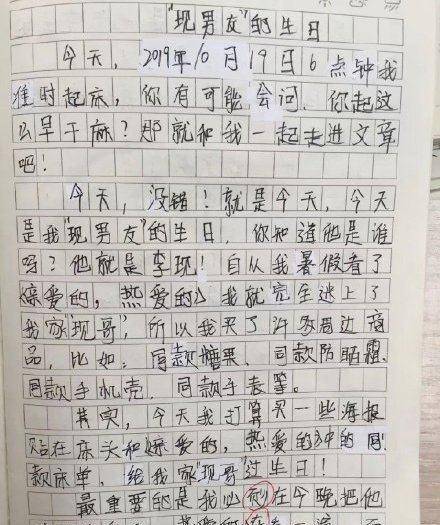 “现男友”的生日
今天，2019年10月19日6点钟我
准时起床，你有可能会问，你起这
么早干麻？那就和我一起走进文章
吧！
今天，没错！就是今天，今天
是我“现男友”的生日，你知道他是谁
吗？他就是李现！自从我暑假看了
亲爱的，热爱的》我就完全迷上了
我家“现哥”，所以我买了许多周边商
品，比如：同款糖果、同款防晒霜、
同款手机壳、同款手表等。
其实，今天我打算买一些海报
贴在床头和《亲爱的，热爱的》中的同
款床单，给我家“现哥”过生日！
最重要的是我必须在今晚把他